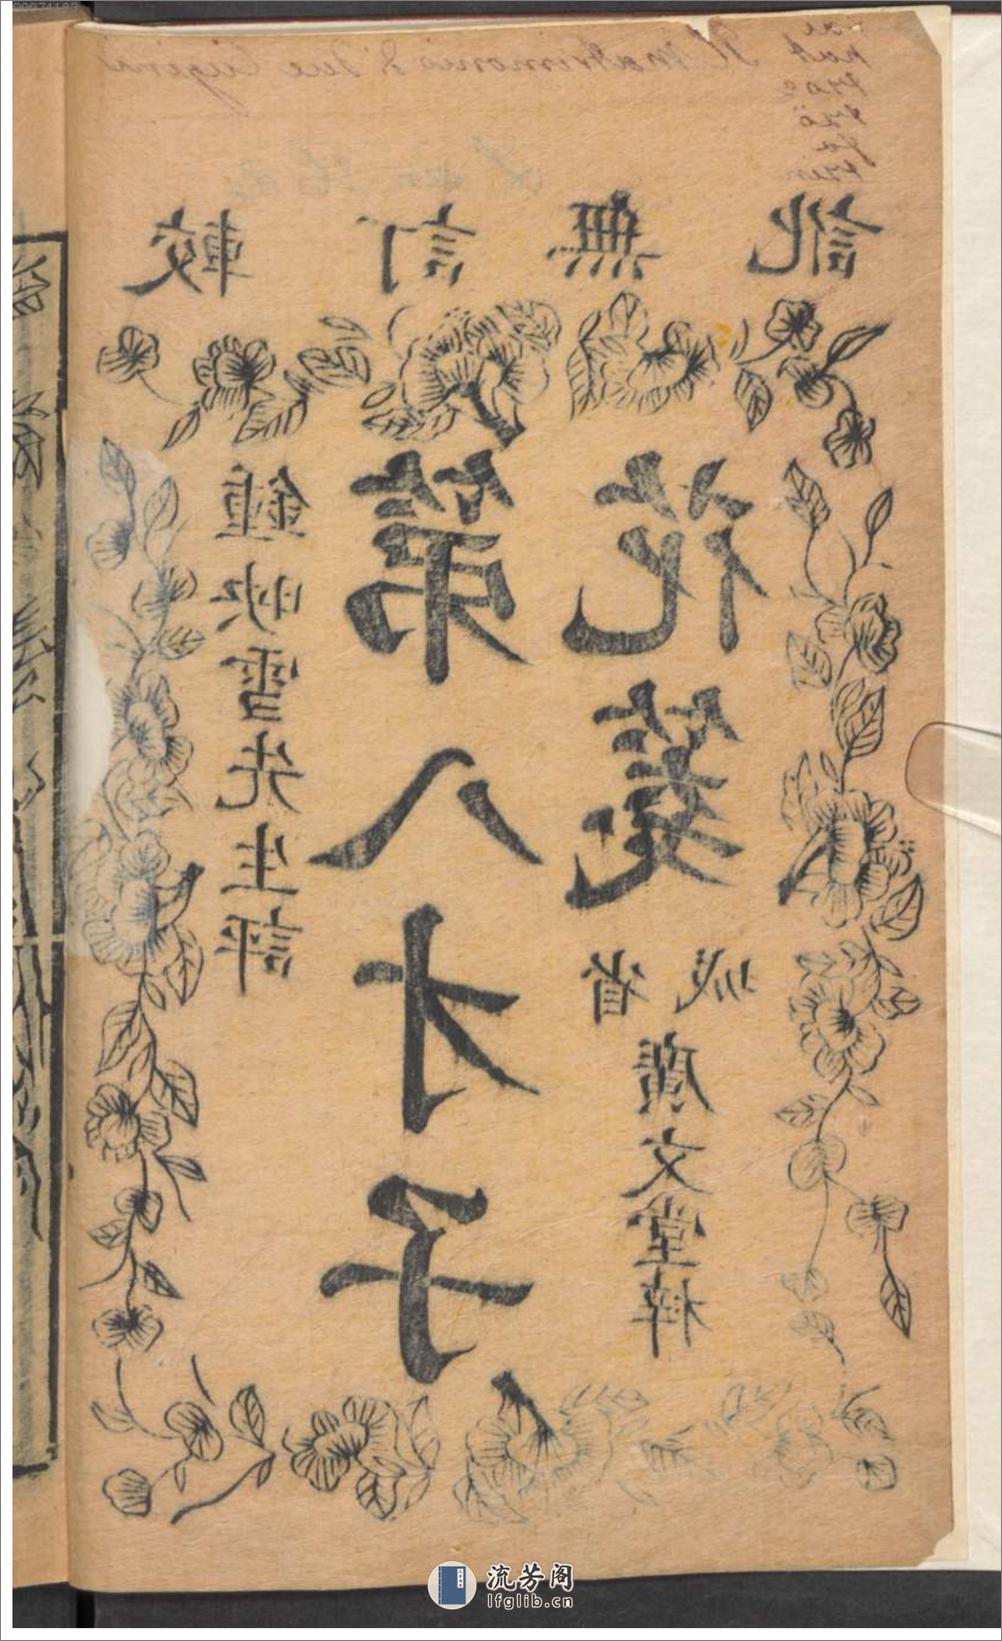 matrimonio due
較訂無訛
鍾映雪先生評
第八才子
花箋
省城
廣文堂梓
流芳阁
lfglib.cn